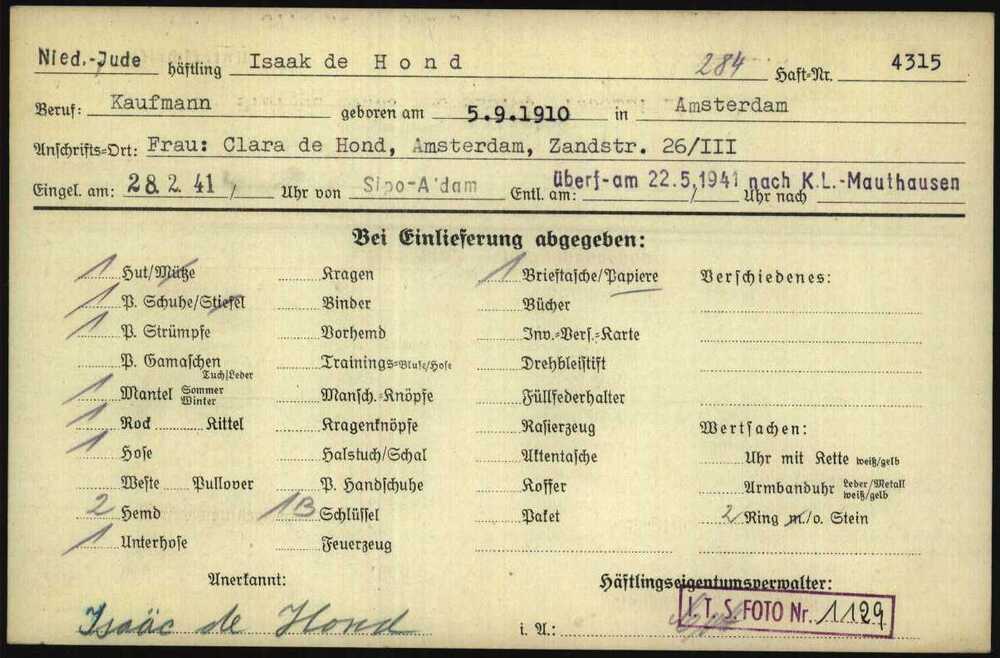 Nied.-Jude häftling Isaak de Hond 284 Haft-Nr. 4315
Beruf: Kaufmann geboren am 5.9.1910 in Amsterdam
Anschrifts-Ort: Frau: Clara de Hond, Amsterdam, Zandstr. 26/III
Eingel. am: 28.2.41 / Uhr von Sipo-A'dam Entl. am: überf. am 22.5.1941 nach K.L.-Mauthausen / Uhr nach
Bei Einlieferung abgegeben:
1 Hut/Mütze Kragen 1 Brieftasche/Papiere Verschiedenes:
1 P. Schuhe/Stiefel Binder Bücher
1 P. Strümpfe Vorhemd Inv.-Vers.-Karte
P. Gamaschen Tuch/Leder Trainings-Bluse/Hose Drehbleistift
1 Mantel Sommer Winter Mansch.-Knöpfe Füllfederhalter
1 Rock Kittel Kragenknöpfe Rasierzeug Wertsachen:
1 Hose Halstuch/Schal Aktentasche Uhr mit Kette weiß/gelb
Weste Pullover P. Handschuhe Koffer Armbanduhr Leder/Metall weiß/gelb
2 Hemd 1B Schlüssel Paket 2 Ring m./o. Stein
1 Unterhose Feuerzeug
Anerkannt: Häftlingseigentumsverwalter:
Isaäc de Hond i. A.:
I.T.S. FOTO Nr. 1129